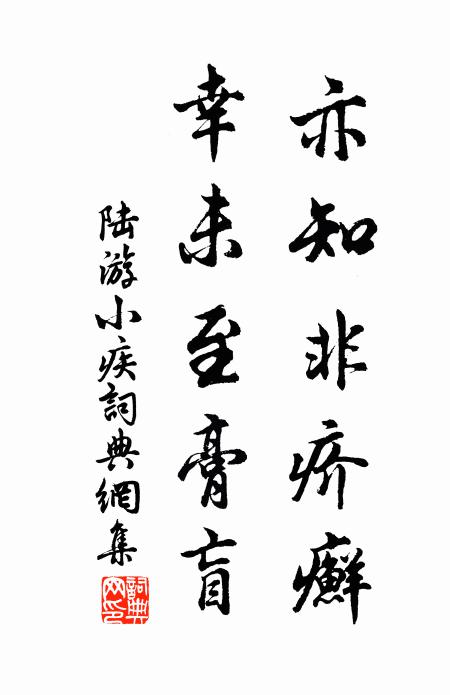 亦知非疥癬
幸未至膏肓
陆游小疾詞典網集
詞典網印